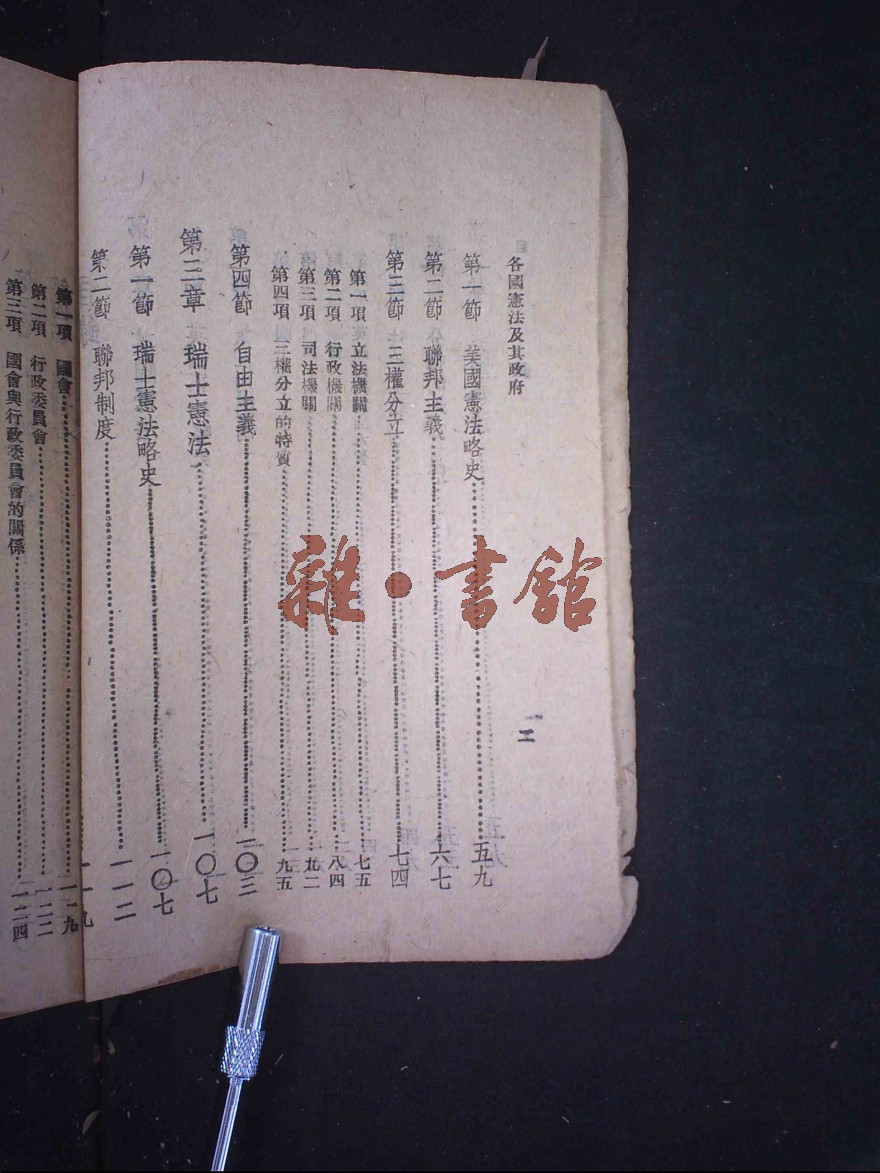 各國憲法及其政府
二
第一節 美國憲法略史 五九
第二節 聯邦主義 六七
第三節 三權分立 七四
第一項 立法機關 七五
第二項 行政機關 八四
第三項 司法機關 九二
第四項 三權分立的特質 九五
第四節 自由主義 一〇三
第三章 瑞士憲法 一〇七
第一節 瑞士憲法略史 一〇七
第二節 聯邦制度 一一二
一一九
第一項 國會 一一九
第二項 行政委員會 一二二
第三項 國會與行政委員會的關係 一二四
雜·書館